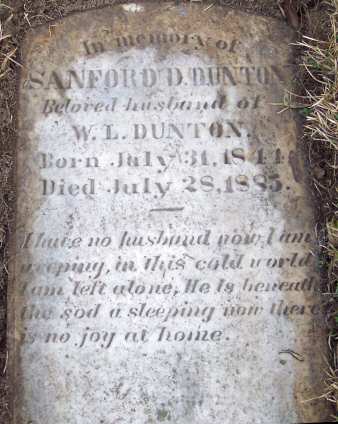 In memory of
SANFORD D. DUNTON
Beloved husband of
W. L. DUNTON.
Born July 31, 1844.
Died July 28, 1885.
I have no husband now, I am
weeping, in this cold world
I am left alone, He Is beneath
the sod a sleeping now there
is no joy at home.